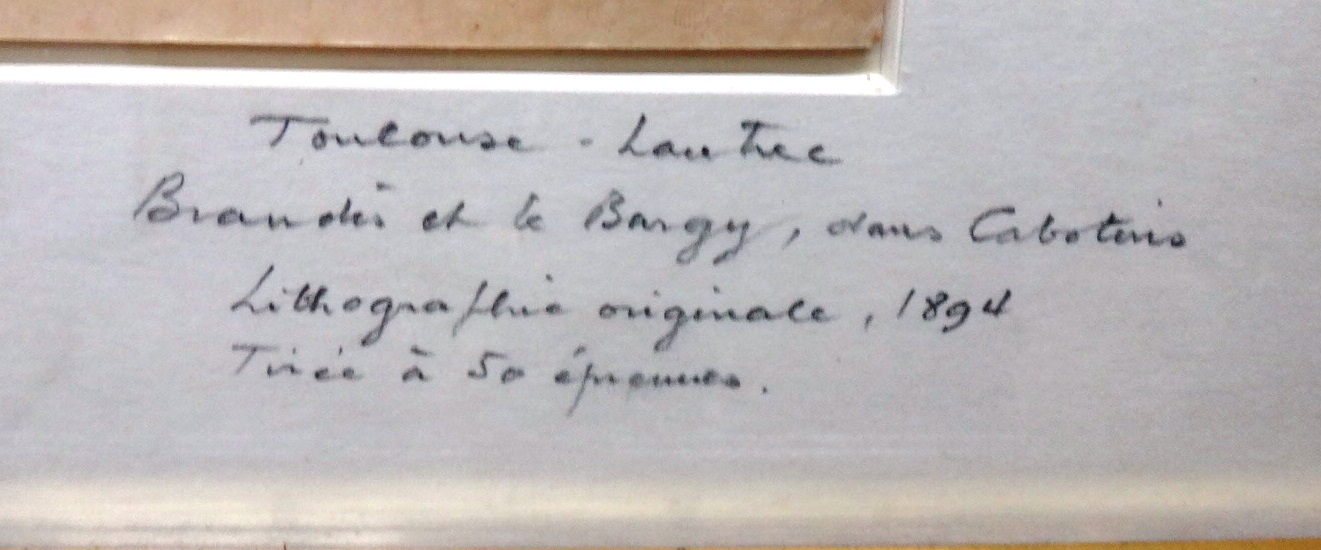 Toulouse - Lautrec
Brandès et le Bargy, dans Cabotins
Lithographie originale, 1894
Tirée à 50 épreuves.